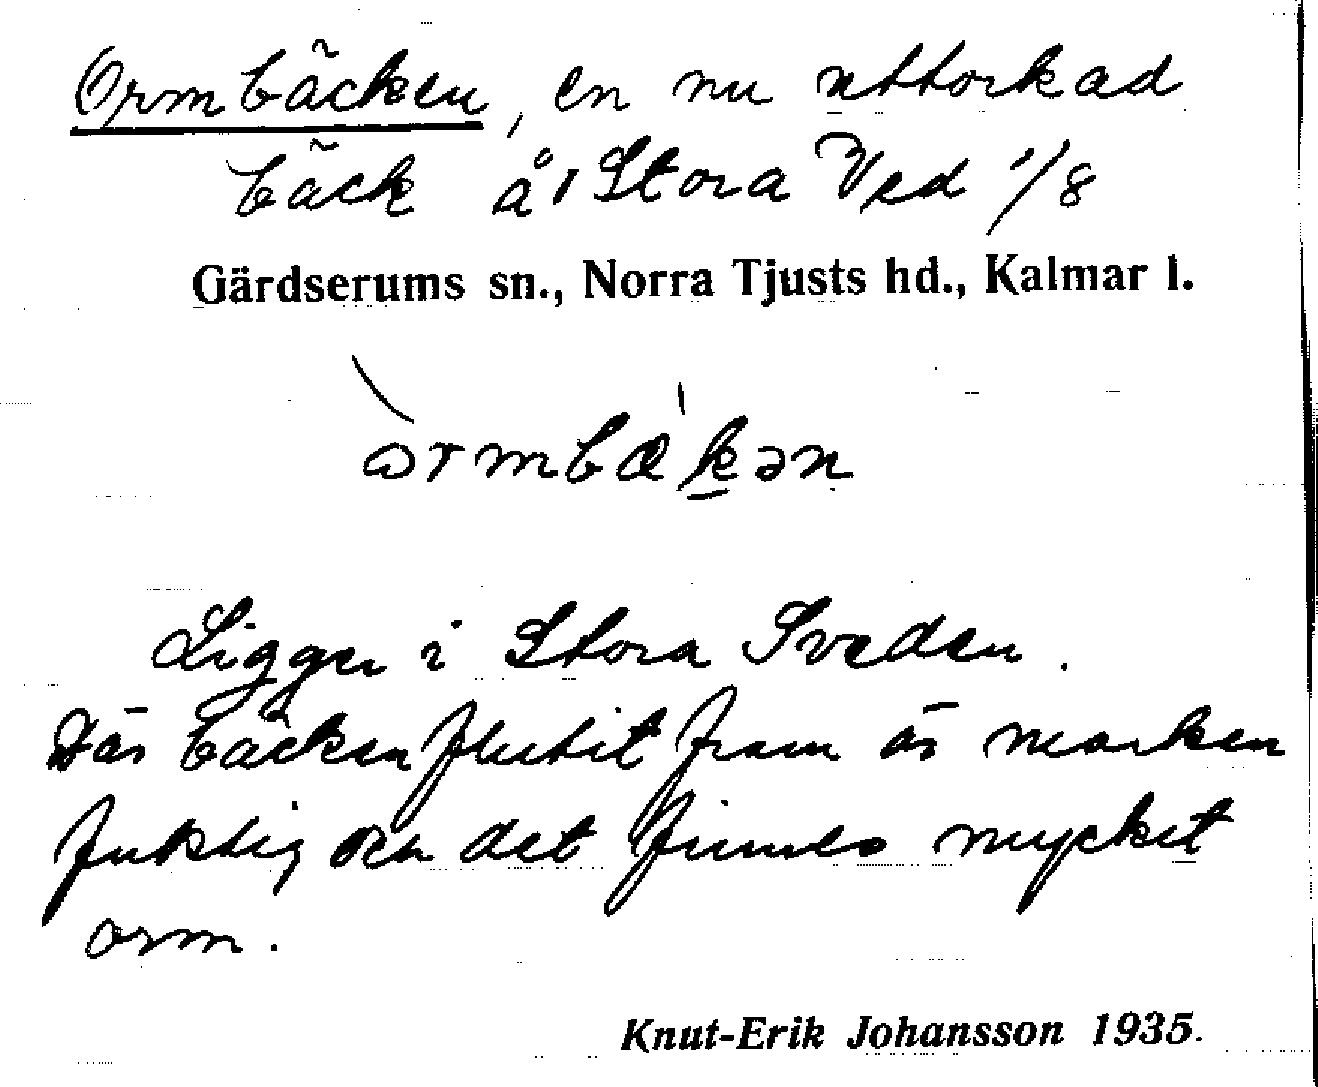 Ormbäcken, en nu uttorkad
bäck å Stora Ved 1/8
Gärdserums sn., Norra Tjusts hd., Kalmar l.
ormbækən
Ligger i Stora Sveden.
Där bäcken flutit fram är marken
fuktig och det finnes mycket
orm.
Knut-Erik Johansson 1935.